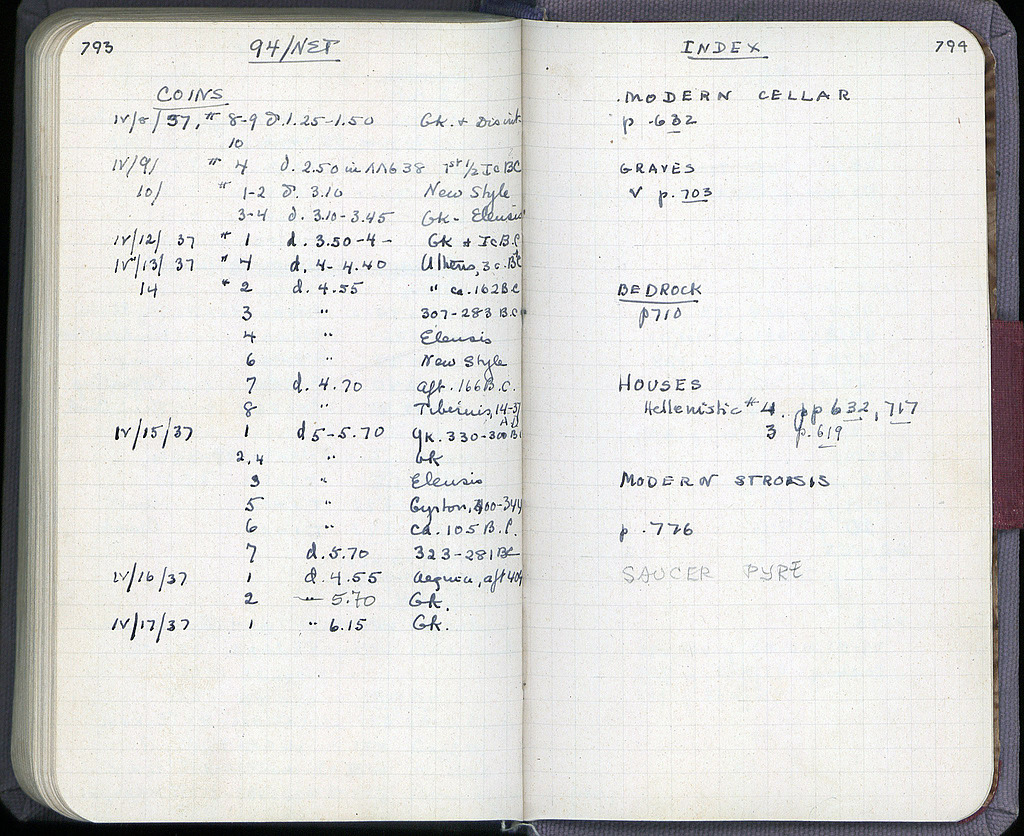 793
94/NEP
COINS
IV/8/37, # 8-9 d. 1.25-1.50 Gk. +
10
IV/9/ # 4 d. 2.50 in ΛΛ638 1st 1/2 I c BC
10/ # 1-2 d. 3.10 New Style
3-4 d. 3.10-3.45 Gk - Eleusis
IV/12/ 37 # 1 d. 3.50-4- Gk + I c B.C
IV/13/ 37 " 4 d. 4-4.40 Athens, 3 c. BC
14 " 2 d. 4.55 " ca. 162 BC
3 " 307-283 B.C.
4 " Eleusis
6 " New Style
7 d. 4.70 aft. 166 B.C.
8 " Tiberius, 14-37
A.D
IV/15/37 1 d 5-5.70 Gk. 330-300 BC
2,4 " Gk
3 " Eleusis
5 "
6 " ca. 105 B.C.
7 d. 5.70 323-281 BC
IV/16/37 1 d. 4.55 Aegina, aft 404
2 " 5.70 Gk.
IV/17/37 1 " 6.15 Gk.
INDEX
794
MODERN CELLAR
p. 632
GRAVES
V p. 703
BEDROCK
p 710
HOUSES
Hellenistic # 4. pp 632, 717
3 p. 619
MODERN STROSIS
p. 776
SAUCER PYRE